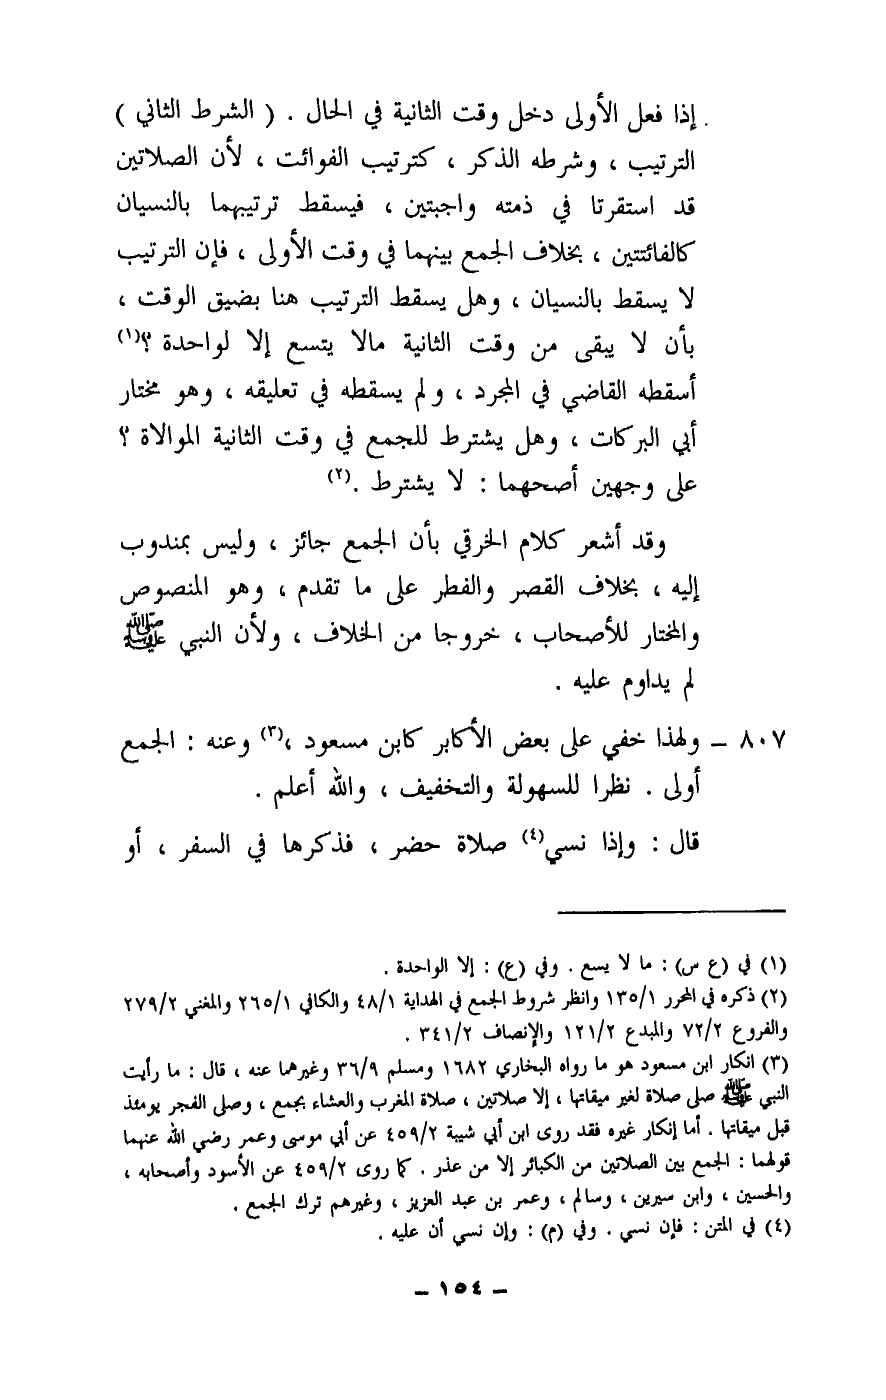 إذا فعل الأولى دخل وقت الثانية في الحال . ( الشرط الثاني )
الترتيب ، وشرطه الذكر ، كترتيب الفوائت ، لأن الصلاتين
قد استقرتا في ذمته واجبتين ، فيسقط ترتيبهما بالنسيان
كالفائتتين ، بخلاف الجمع بينهما في وقت الأولى ، فإن الترتيب
لا يسقط بالنسيان ، وهل يسقط الترتيب هنا بضيق الوقت ،
بأن لا يبقى من وقت الثانية مالا يتسع إلا لواحدة ؟(١)
أسقطه القاضي في المجرد ، ولم يسقطه في تعليقه ، وهو مختار
أبي البركات ، وهل يشترط للجمع في وقت الثانية الموالاة ؟
على وجهين أصحهما : لا يشترط .(٢)
وقد أشعر كلام الخرقي بأن الجمع جائز ، وليس بمندوب
إليه ، بخلاف القصر والفطر على ما تقدم ، وهو المنصوص
والمختار للأصحاب ، خروجا من الخلاف ، ولأن النبي ﷺ
لم يداوم عليه .
٨٠٧ – ولهذا خفي على بعض الأكابر كابن مسعود ،(٣) وعنه : الجمع
أولى . نظرا للسهولة والتخفيف ، والله أعلم .
قال : وإذا نسي(٤) صلاة حضر ، فذكرها في السفر ، أو
(١) في (ع س) : ما لا يسع . وفي (ع) : إلا الواحدة .
(٢) ذكره في المحرر ١٣٥/١ وانظر شروط الجمع في الهداية ٤٨/١ والكافي ٢٦٥/١ والمغني ٢٧٩/٢
والفروع ٧٢/٢ والمبدع ١٢١/٢ والإنصاف ٣٤١/٢ .
(٣) انكار ابن مسعود هو ما رواه البخاري ١٦٨٢ ومسلم ٣٦/٩ وغيرهما عنه ، قال : ما رأيت
النبي ﷺ صلى صلاة لغير ميقاتها ، إلا صلاتين ، صلاة المغرب والعشاء بجمع ، وصلى الفجر يومئذ
قبل ميقاتها . أما إنكار غيره فقد روى ابن أبي شيبة ٤٥٩/٢ عن أبي موسى وعمر رضي الله عنهما
قولهما : الجمع بين الصلاتين من الكبائر إلا من عذر . كما روى ٤٥٩/٢ عن الأسود وأصحابه ،
والحسين ، وابن سيرين ، وسالم ، وعمر بن عبد العزيز ، وغيرهم ترك الجمع .
(٤) في المتن : فإن نسي . وفي (م) : وإن نسي أن عليه .
– ١٥٤ –